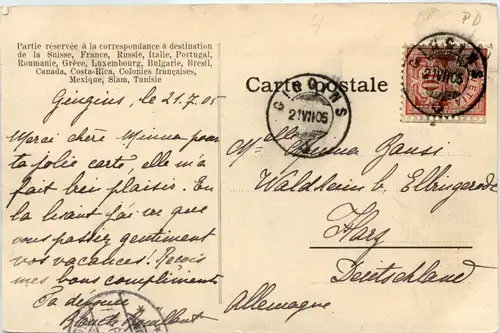 Partie réservée à la correspondance à destination
de la Suisse, France, Russie, Italie, Portugal,
Roumanie, Grèce, Luxembourg, Bulgarie, Bresil,
Canada, Costa-Rica, Colonies françaises,
Mexique, Siam, Tunisie
Gingins, le 21.7.05
Merci chère Minna pour
ta jolie carte, elle m'a
fait bien plaisir. En
la lisant j'ai vu que
vous passez gentiment
vos vacances! Reçois
mes bons compliments
Ta dévouée
Carte postale
GINGINS
21 VII 05
GINGINS
21 VII 05
10
Waldheim b. Elbingerode
Harz
Deutschland
Allemagne